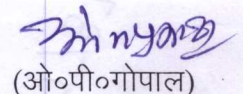 (ओ०पी०गोपाल)